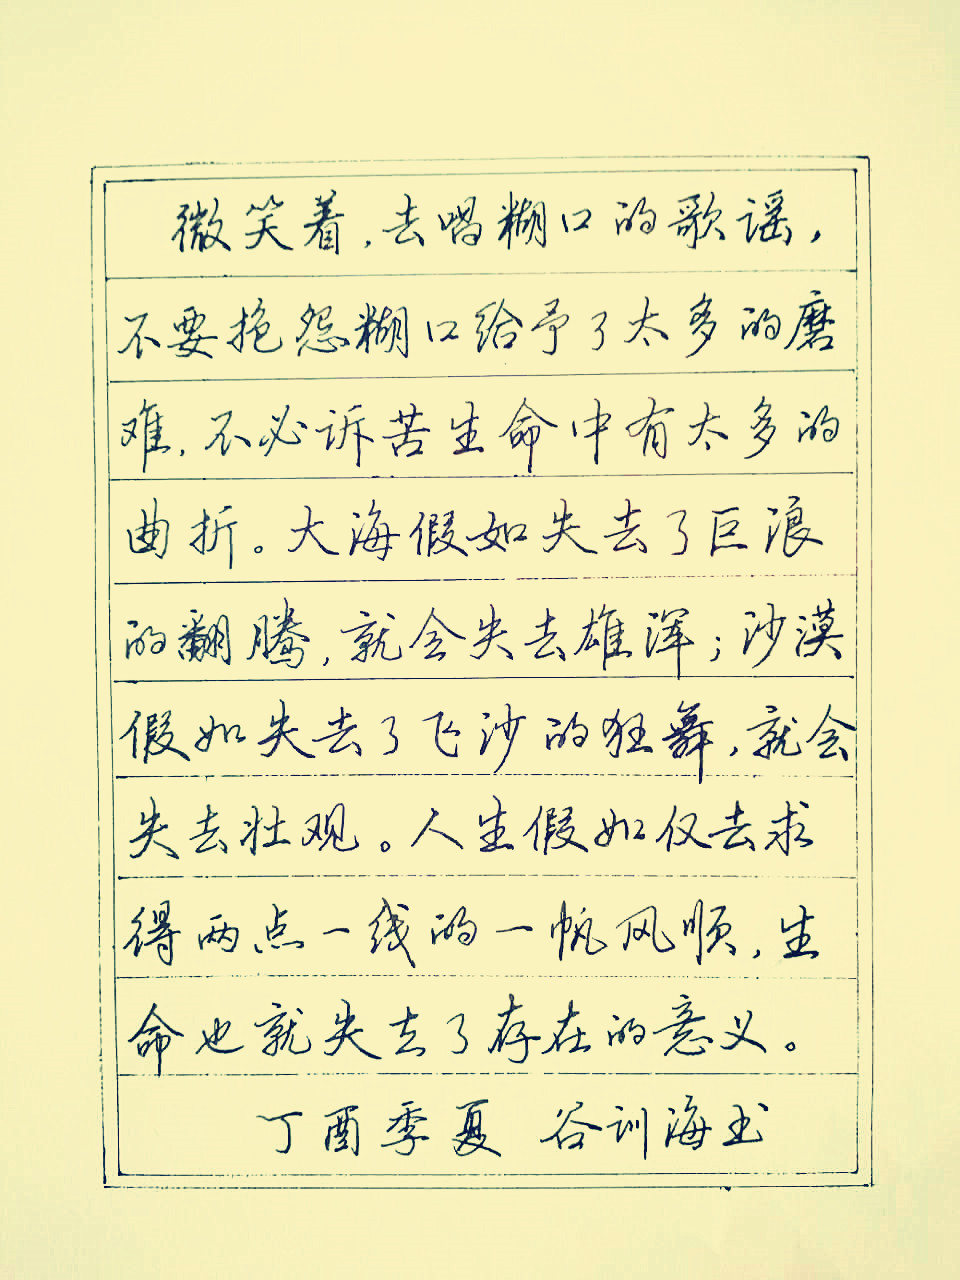 微笑着,去唱糊口的歌谣,
不要抱怨糊口给予了太多的磨
难,不必诉苦生命中有太多的
曲折。大海假如失去了巨浪
的翻腾,就会失去雄浑;沙漠
假如失去了飞沙的狂舞,就会
失去壮观。人生假如仅去求
得两点一线的一帆风顺,生
命也就失去了存在的意义。
丁酉季夏 谷训海书